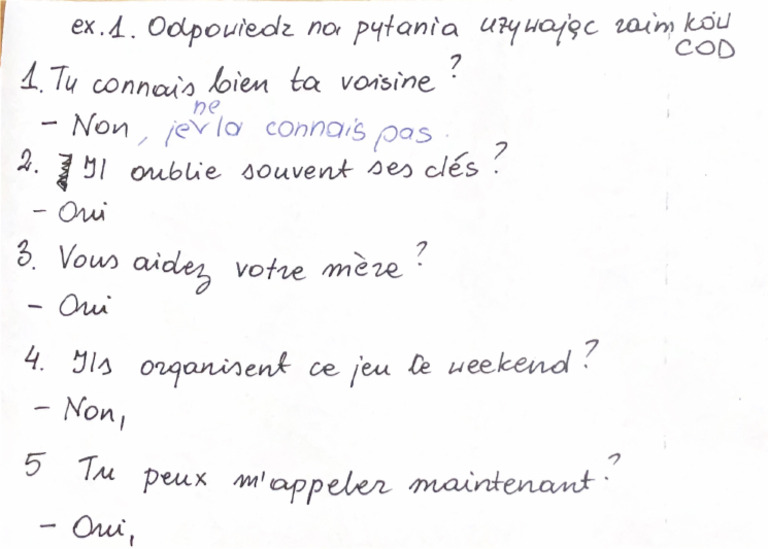 ex. 1. Odpowiedz na pytania używając zaimków
COD
1. Tu connais bien ta voisine?
- Non, je ne la connais pas.
2. Il oublie souvent ses clés?
- Oui
3. Vous aidez votre mère?
- Oui
4. Ils organisent ce jeu le weekend?
- Non,
5 Tu peux m'appeler maintenant?
- Oui,